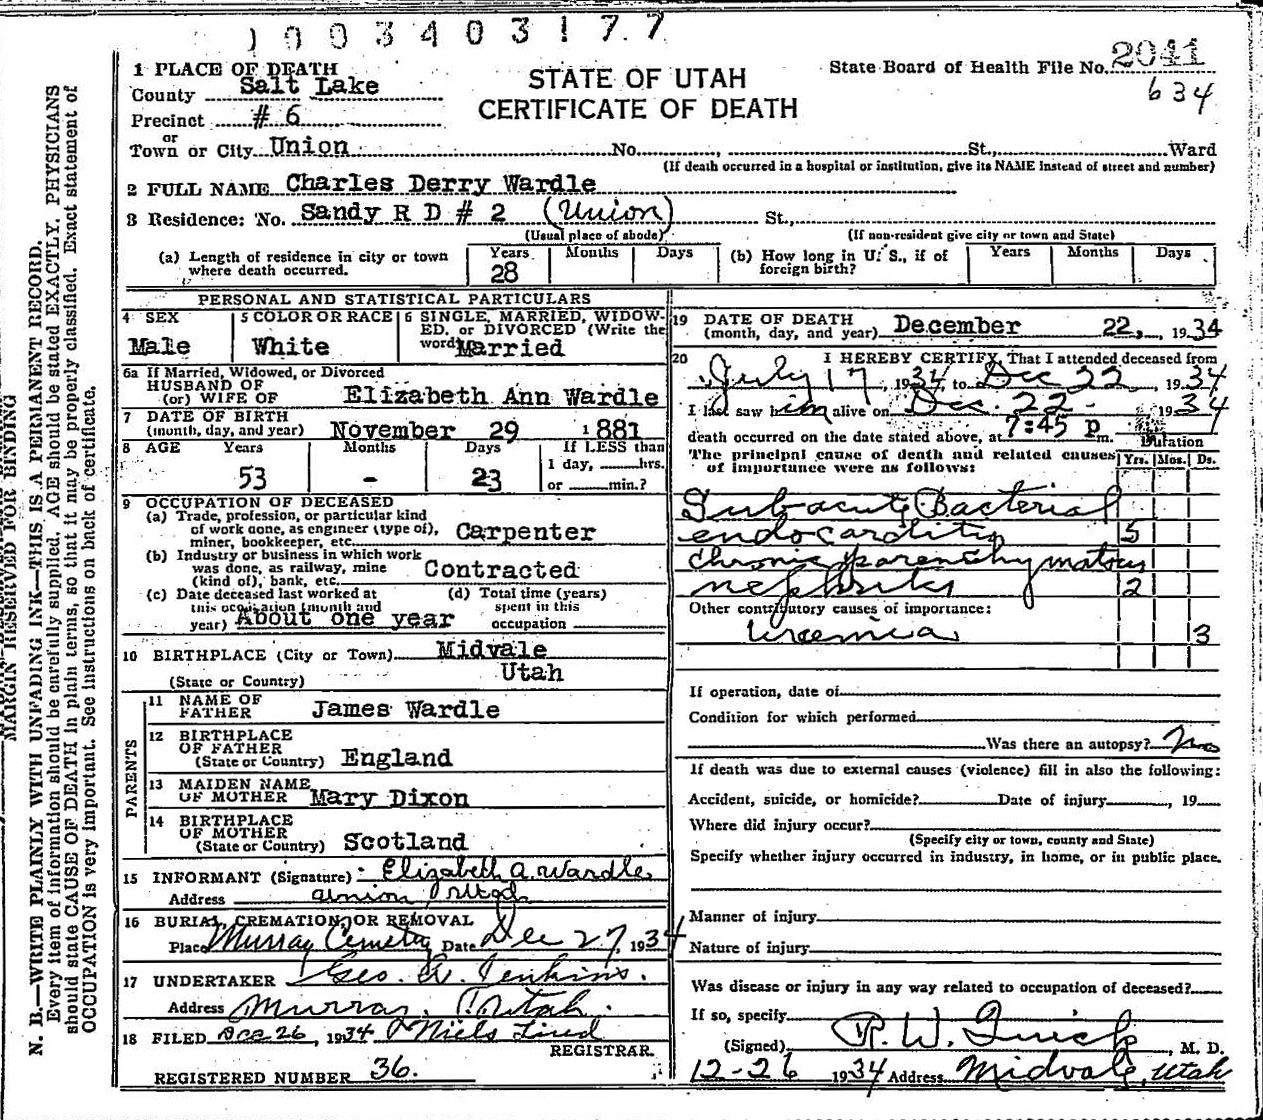 1003403177
1 PLACE OF DEATH
County Salt Lake
Precinct # 6
or
Town or City Union No. St., Ward
(If death occurred in a hospital or institution, give its NAME instead of street and number)
STATE OF UTAH
CERTIFICATE OF DEATH
State Board of Health File No. 2041
634
2 FULL NAME Charles Derry Wardle
3 Residence: No. Sandy R D # 2 (Union) St.,
(Usual place of abode) (If non-resident give city or town and State)
(a) Length of residence in city or town where death occurred. Years 28 Months Days
(b) How long in U. S., if of foreign birth? Years Months Days
PERSONAL AND STATISTICAL PARTICULARS
4 SEX Male
5 COLOR OR RACE White
6 SINGLE, MARRIED, WIDOWED, or DIVORCED (Write the word) Married
6a If Married, Widowed, or Divorced
HUSBAND OF
(or) WIFE OF Elizabeth Ann Wardle
7 DATE OF BIRTH
(month, day, and year) November 29 1881
8 AGE Years 53 Months - Days 23
If LESS than
1 day, hrs.
or min.?
9 OCCUPATION OF DECEASED
(a) Trade, profession, or particular kind
of work done, as engineer (type of),
miner, bookkeeper, etc. Carpenter
(b) Industry or business in which work
was done, as railway, mine
(kind of), bank, etc. Contracted
(c) Date deceased last worked at
this occupation (month and
year) About one year
(d) Total time (years)
spent in this
occupation
10 BIRTHPLACE (City or Town) Midvale
(State or Country) Utah
PARENTS
11 NAME OF
FATHER James Wardle
12 BIRTHPLACE
OF FATHER
(State or Country) England
13 MAIDEN NAME
OF MOTHER Mary Dixon
14 BIRTHPLACE
OF MOTHER
(State or Country) Scotland
15 INFORMANT (Signature) Elizabeth A. Wardle
Address Union Utah
16 BURIAL, CREMATION, OR REMOVAL
Place Murray Cemetery Date Dec 27, 1934
17 UNDERTAKER Geo. A. Jenkins.
Address Murray, Utah.
18 FILED Dec 26, 1934 Niels Lind
REGISTRAR.
REGISTERED NUMBER 36.
19 DATE OF DEATH
(month, day, and year) December 22, 1934
20 I HEREBY CERTIFY, That I attended deceased from
July 17, 1934 to Dec 22, 1934
I last saw him alive on Dec. 22 - 1934
death occurred on the date stated above, at 7:45 p m.
Duration
The principal cause of death and related causes Yrs. Mos. Ds.
of importance were as follows:
Sub-acute Bacterial
endocarditis 5
Chronic parenchymatous
nephritis 2
Other contributory causes of importance:
Uremia 3
If operation, date of
Condition for which performed
Was there an autopsy? No
If death was due to external causes (violence) fill in also the following:
Accident, suicide, or homicide? Date of injury , 19
Where did injury occur?
(Specify city or town, county and State)
Specify whether injury occurred in industry, in home, or in public place.
Manner of injury
Nature of injury
Was disease or injury in any way related to occupation of deceased?
If so, specify
(Signed) R. W. Quick, M. D.
12-26 1934 Address Midvale, Utah
MARGIN RESERVED FOR BINDING
N. B.—WRITE PLAINLY WITH UNFADING INK—THIS IS A PERMANENT RECORD.
Every item of information should be carefully supplied. AGE should be stated EXACTLY. PHYSICIANS
should state CAUSE OF DEATH in plain terms, so that it may be properly classified. Exact statement of
OCCUPATION is very important. See instructions on back of certificate.